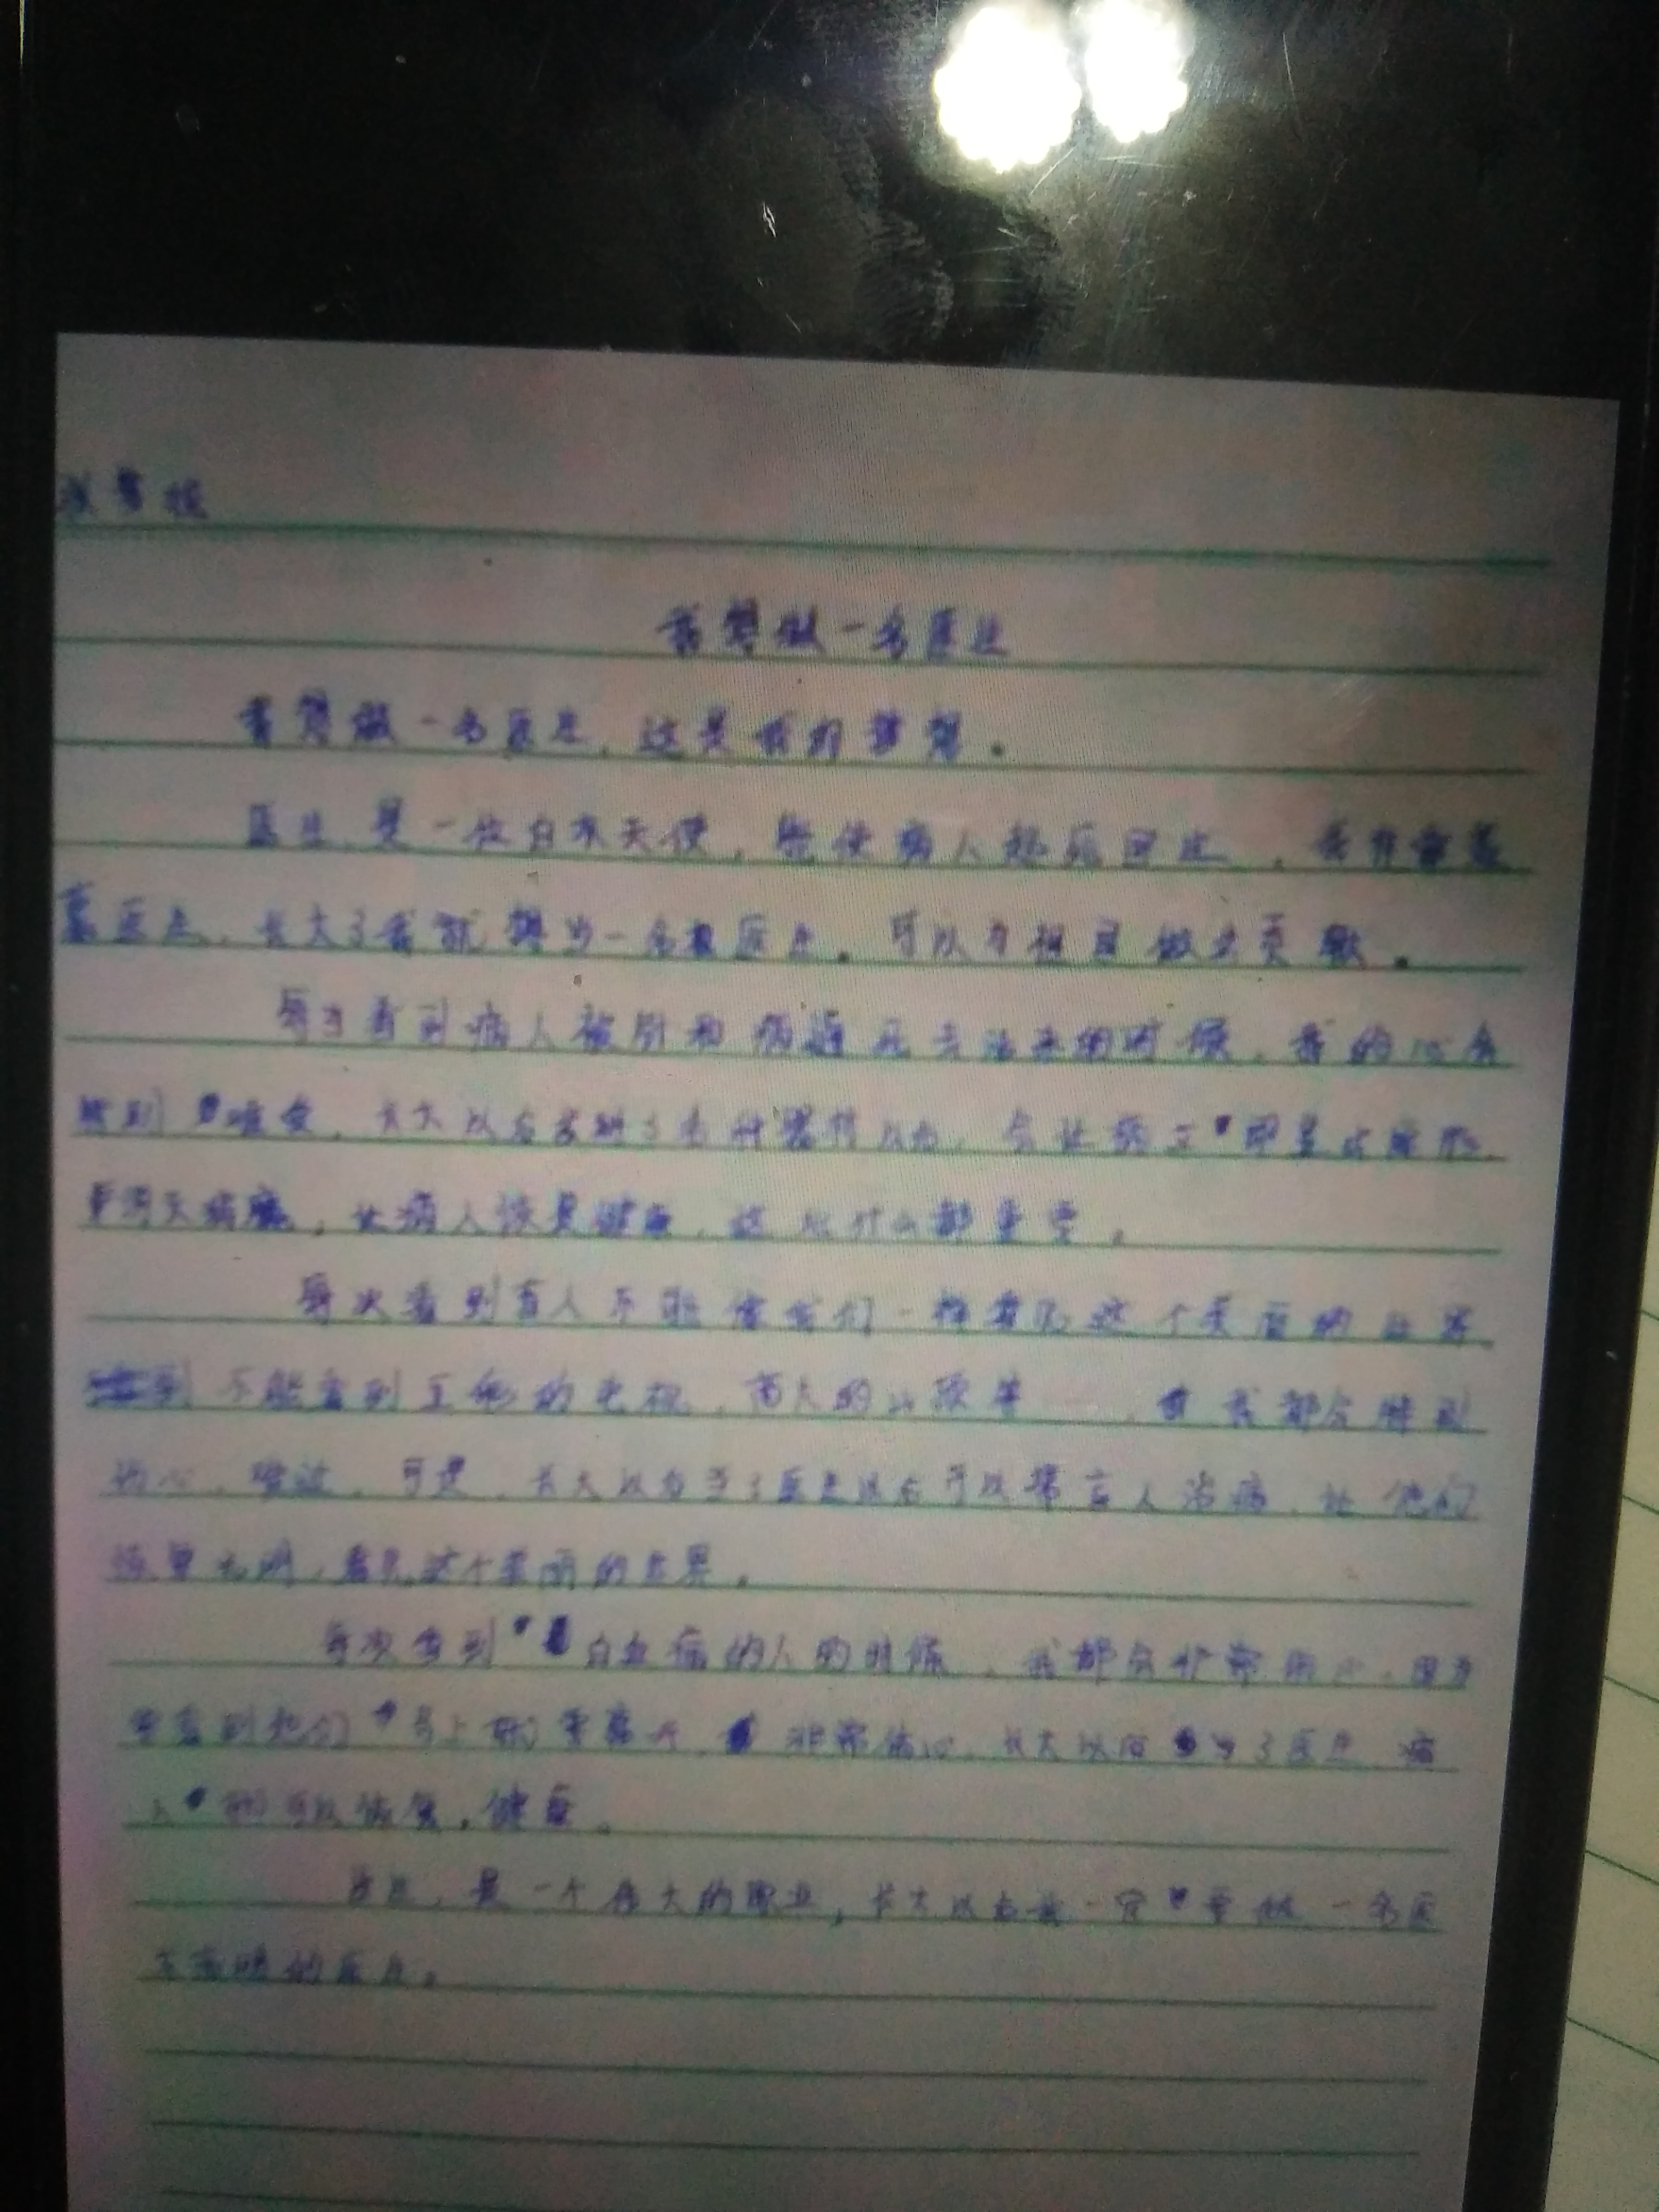 我想做一名医生
我想做一名医生,这是我的梦想。
医生是一位白衣天使,能使病人起死回生,我非常羡
慕医生,长大了我就想当一名医生。可以为祖国做出贡献。
每当看到病人被病痛死去活来的时候,我的心会
特别难受,长大以后会让
消灭病魔,让病人恢复健康,这比什么都重要。
每次看到盲人不能像我们一样看见这个美丽的世界,
不能看到正彩的电视,高大的山顶等……,我都会特别
伤心,难过,可是,长大以后当了医生以后可以帮盲人治病,让他们
恢复光明,看见这个美丽的世界。
每次看到白血病的人的时候,我都会非常伤心,因为
看到他们马上就要离开,非常伤心,长大以后当了医生,病
人就可以恢复,健康。
医生,是一个伟大的职业,长大以后我一定要做一名医
的医生。